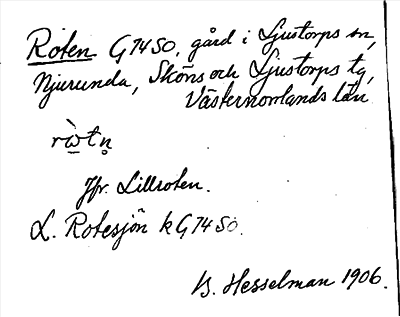 Roten G74SO, gård i Ljustorps sn,
Njurunda, Sköns och Ljustorps tg,
Västernorrlands län
rὼ̱tn̥
Jfr. Lillroten.
L. Rotesjön k G74SO.
B. Hesselman 1906.